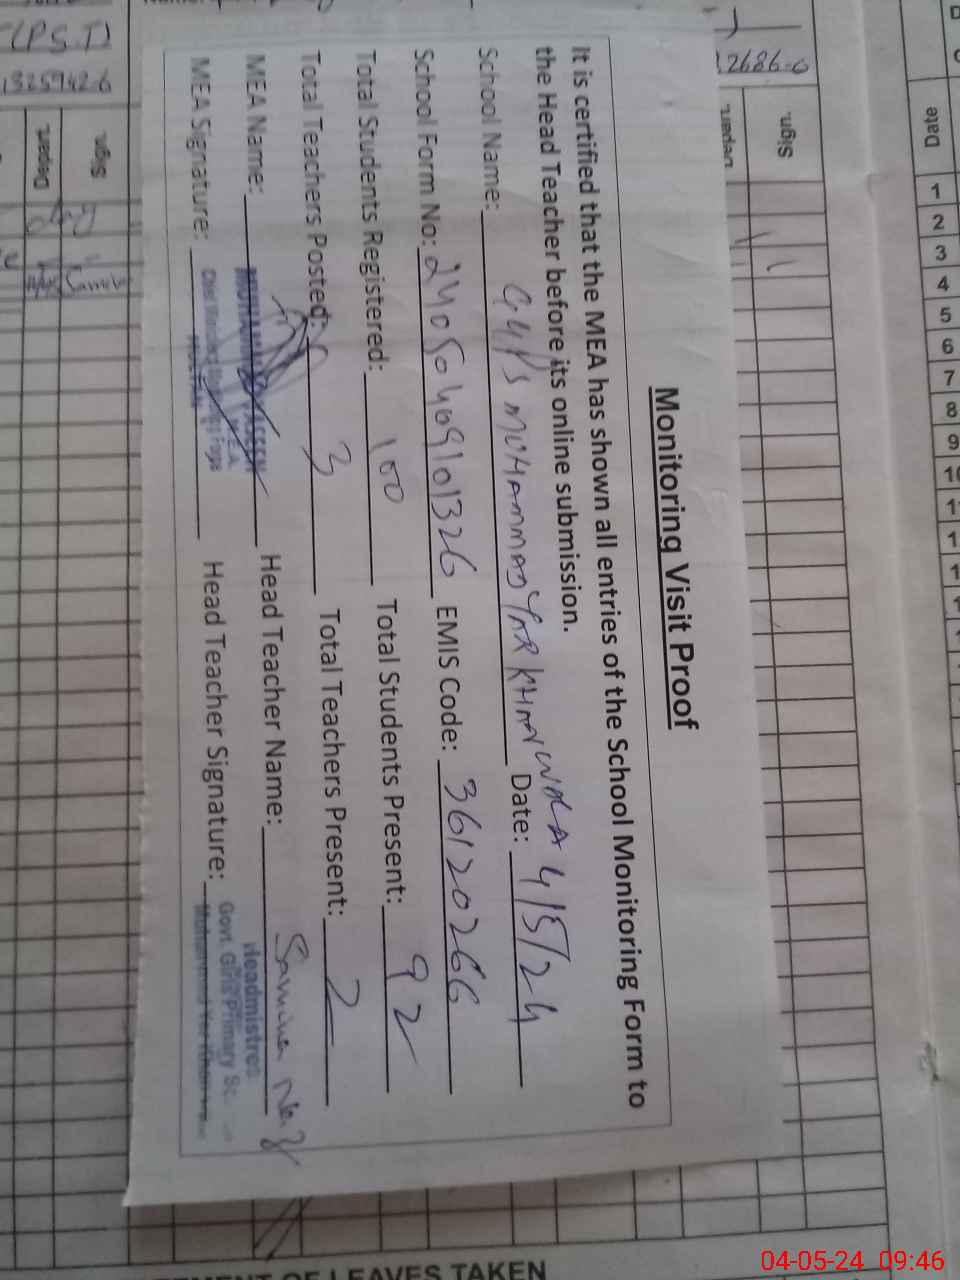 Monitoring Visit Proof
It is certified that the MEA has shown all entries of the School Monitoring Form to
the Head Teacher before its online submission.
School Name: GGPS MUHAMMAD YAR KHAN WALA Date: 4/5/24
School Form No: 24050409101326 EMIS Code: 36120266
Total Students Registered: 100 Total Students Present: 92
Total Teachers Posted: 3 Total Teachers Present: 2
MEA Name: MUHAMMAD Head Teacher Name: Samina
MEA Signature: Head Teacher Signature:
M.E.A.
MULTAN
Headmistress
Govt. Girls Primary Sc
Muhammad Yar Khan
(P.S.T)
1325942-6
Sign.
Depart.
Samina
2686-0
Sign.
Depart.
Date
1
2
3
4
5
6
7
8
9
10
1
1
1
1
OF LEAVES TAKEN
04-05-24 09:46